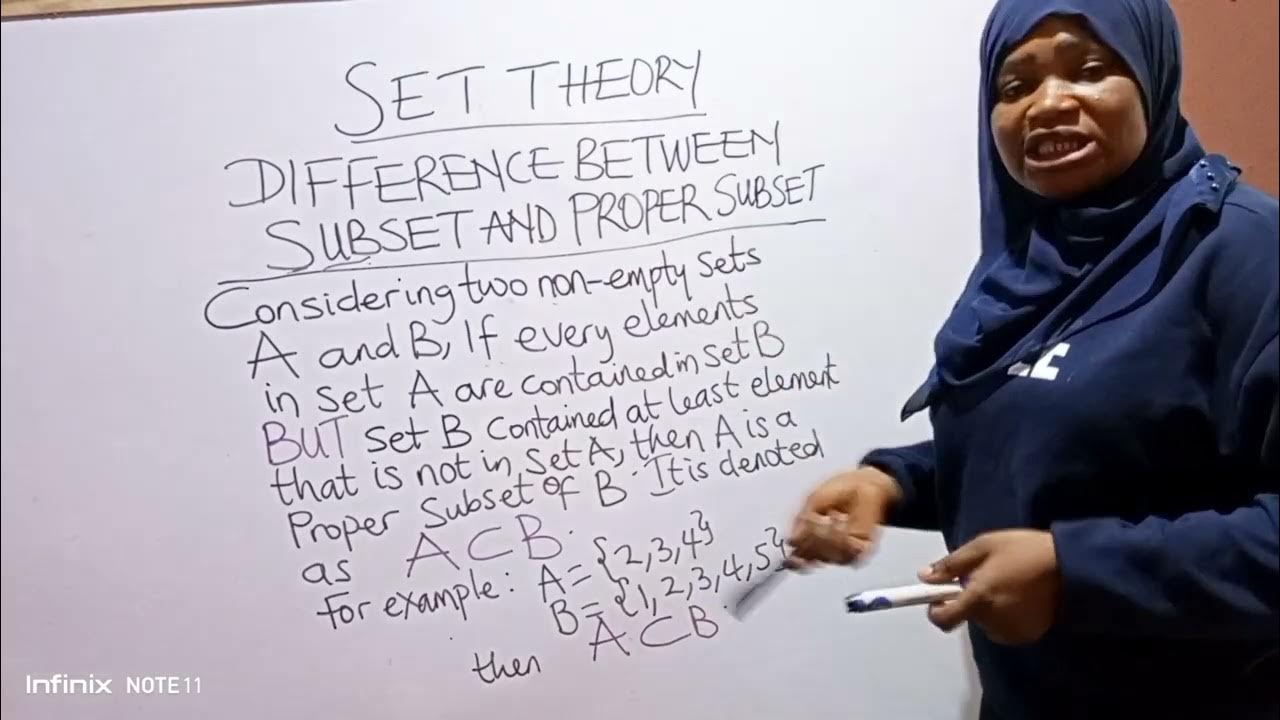 SET THEORY
DIFFERENCE BETWEEN
SUBSET AND PROPER SUBSET
Considering two non-empty sets
A and B, If every elements
in set A are contained in set B
BUT set B contained at least element
that is not in set A, then A is a
Proper Subset of B. It is denoted
as A ⊂ B.
for example: A = {2,3,4}
B = {1,2,3,4,5}
then A ⊂ B.
Infinix NOTE 11